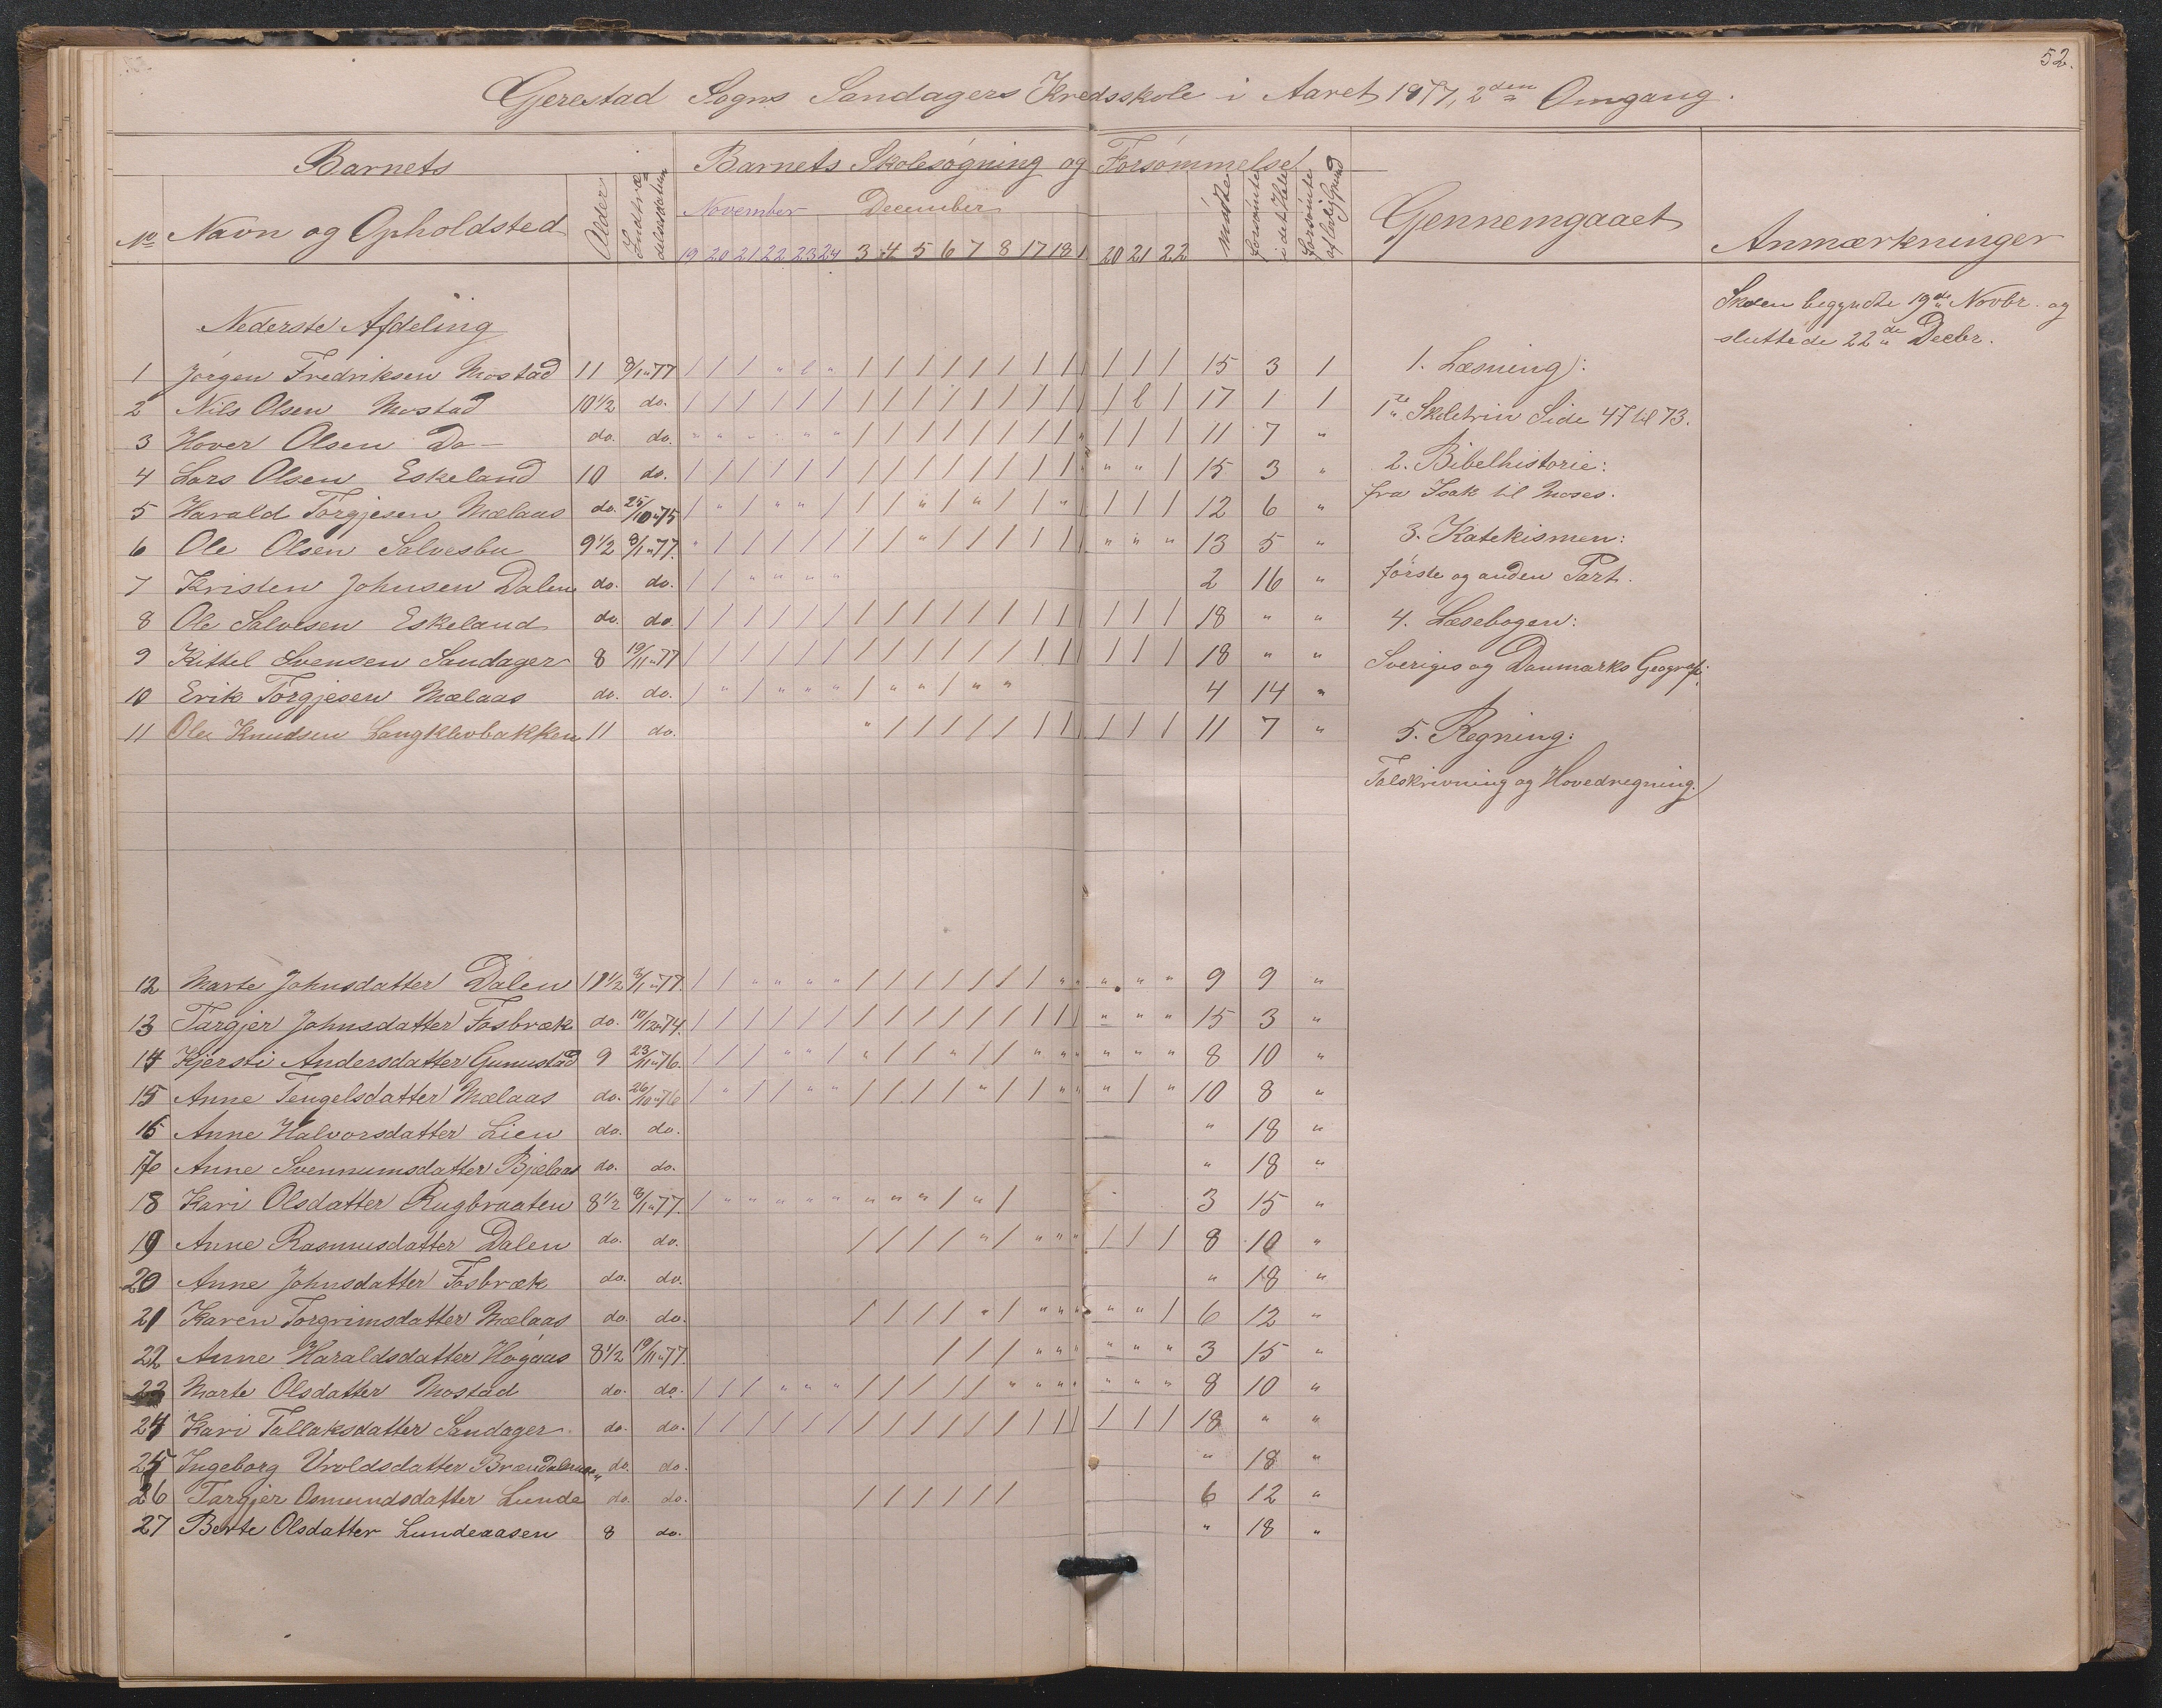 52.
Gjerestad Sogns Sandagers Kredsskole i Aaret 1877, 2den Omgang.
Barnets Barnets Skolesøgning og Forsømmelse
No Navn og Opholdsted Alder Indtrædelsesdatum November December Mødte Forsømte i det Hele Forsømte af lovlig Grund Gennemgaaet Anmærkninger
19 20 21 22 23 24 3 4 5 6 7 8 17 18 1 20 21 22
Skolen begyndte 19de Novbr. og
sluttede 22de Decbr.
Nederste Afdeling
1 Jørgen Fredriksen Mostad 11 8/1 77 / / / " l " / / / / / / / / / / / / 15 3 1
2 Nils Olsen Mostad 10 1/2 do. / / / / / / / / / / / / / / / / l / 17 1 1
3 Hover Olsen Do do. do. " " " " " " / / / / / / / / " / / / 11 7 "
4 Lars Olsen Eskeland 10 do. / / / / / / / / / / / / / / " " " / 15 3 "
5 Harald Torgjesen Mælaas do. 25/10 75 / " / " " / / / " / " / / " / / / / 12 6 "
6 Ole Olsen Salvesbu 9 1/2 8/1 77. " / / / / / / / " / / / / / / " " " 13 5 "
7 Kristen Johnsen Dalen do. do. / / " " " " 2 16 "
8 Ole Salvesen Eskeland do. do. / / / / / / / / / / / / / / / / / / 18 " "
9 Kittel Svensen Sandager 8 19/11 77 / / / / / / / / / / / / / / / / / / 18 " "
10 Erik Torgjesen Mælaas do. do. / " / " " " / " " / " " 4 14 "
11 Ole Knudsen Langklevbakken 11 do. " / / / / / / / / / / / 11 7 "
1. Læsning:
1te Skoletrin Side 47 til 73.
2. Bibelhistorie:
fra Isak til Moses.
3. Katekismen:
første og anden Part.
4. Læsebogen:
Sveriges og Danmarks Geografi.
5. Regning:
Talskrivning og Hovedregning.
12 Marte Johnsdatter Dalen 11 1/2 8/1 77. / / " " " " / / / / / / / " " " " " 9 9 "
13 Targjer Johnsdatter Fosbræk do. 10/12 74. / / / / / / / / / / / / / / / " " " 15 3 "
14 Kjersti Andersdatter Gunnestad 9 23/11 76. / / / " " / " / / " / / " " " " " " 8 10 "
15 Anne Tengelsdatter Mælaas do. 26/10 76 / " / / " " / / / / " / / " " " / " 10 8 "
16 Anne Halvorsdatter Lien do. do. " 18 "
17 Anne Svennumsdatter Bjælaas do. do. " 18 "
18 Kari Olsdatter Rugbraaten 8 1/2 8/1 77. / " " " " " " " " / " / 3 15 "
19 Anne Rasmusdatter Dalen do. do. / / / / " / " " " / / / 8 10 "
20 Anne Johnsdatter Fosbræk do. do. " 18 "
21 Karen Torgrimsdatter Mælaas do. do. / / / / " / " " " " " / 6 12 "
22 Anne Haraldsdatter Høgaas 8 1/2 19/11 77. / / / " " " " " " 3 15 "
23 Marte Olsdatter Mostad do. do. / / / " " " / / / / / " " " " " " " 8 10 "
24 Kari Tallaksdatter Sandager do. do. / / / / / / / / / / / / / / / / / / 18 " "
25 Ingeborg Vroldsdatter do. do. " 18 "
26 Targjer Osmundsdatter Lunde do. do. / / / / / / 6 12 "
27 Berte Olsdatter Lundeaasen 8 do. " 18 "